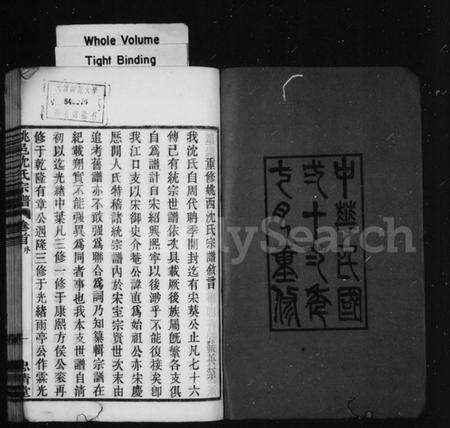 Whole Volume
Tight Binding
重修姚西沈氏宗譜敘言
我沈氏自周代聃季開封迄有宋蔡公止凡七十六
傳已有統宗世譜依次具載厥後族屬旣繁各支俱
自為譜計自宋紹興熙寧以後渺乎不能復接矣卽
我江口支以宋御史介菴公諱直為始祖公亦宋慶
歷間人氏特稽諸統宗譜內於宋室宗賢世次末由
追考舊譜亦不敢强為聯合為詞乃知纂輯宗譜在
紀載翔實不能强異為同者事也我本支世譜自淸
初以迄光緒中葉凡三修一修于康熙方侯公梁再
修于乾隆有章公遇隆三修于光緒雨亭公作霖光
姚邑沈氏宗譜
卷首
忠淸堂
中華民國
二十六年
七月重修
MySearch